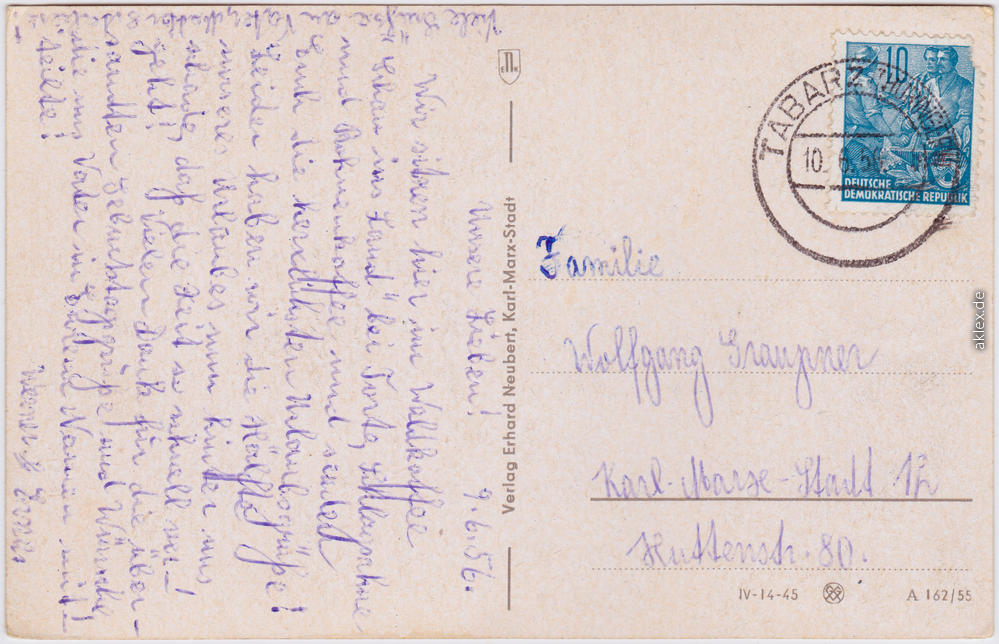 Unsere Lieben! 9.6.56.
Wir sitzen hier im Waldkaffee
"Schau ins Land" bei Torte, Schlagsahne
und Bohnenkaffee und sendet
Euch die herzlichsten Urlaubsgrüße!
Leider haben wir die Hälfte
unseres Urlaubes nun hinter uns
schade, daß die Zeit so schnell ver-
geht! Vielen Dank für die über-
sandten Geburtstagsgrüße und Wünsche
die uns Vater in
teilte!
Werner
Viele Grüße
Verlag Erhard Neubert, Karl-Marx-Stadt
TABARZ
10. 6. 56
10
DEUTSCHE
DEMOKRATISCHE REPUBLIK
Familie
Wolfgang Graupner
Karl-Marx-Stadt
Huttenstr. 80.
IV-14-45 A 162/55
aklex.de